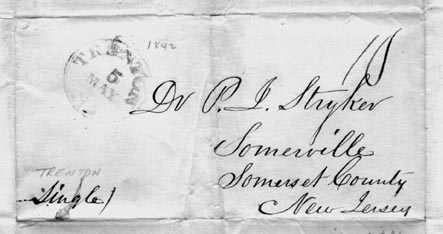 1842
TRENTON
5
MAY
10
Dr P. J. Stryker
Somerville
Somerset County
New Jersey
TRENTON
Single)